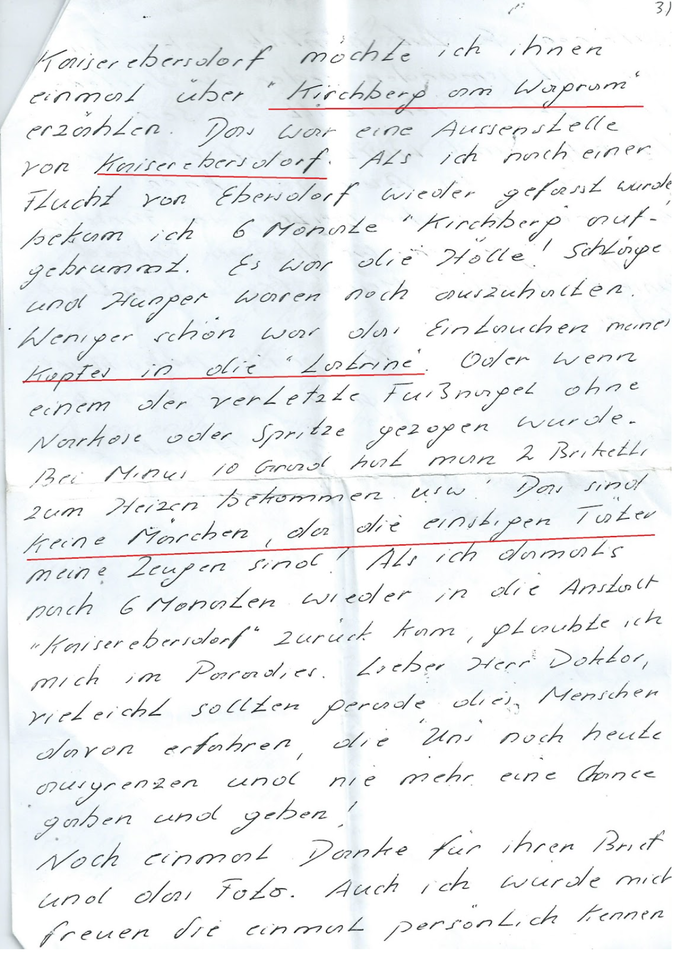 3)
Kaiserebersdorf möchte ich ihnen
einmal über "Kirchberg am Wagram"
erzählen. Das war eine Aussenstelle
von Kaiserebersdorf. Als ich nach einer
Flucht von Ebersdorf wieder gefasst wurde
bekam ich 6 Monate "Kirchberg auf-
gebrummt. Es war die Hölle! Schläge
und Hunger waren noch auszuhalten.
Weniger schön war das Eintauchen meines
Kopfes in die "Latrine". Oder wenn
einem der verletzte Fußnagel ohne
Narkose oder Spritze gezogen wurde.
Bei Minus 10 Grad hat man 2 Briketts
zum Heizen bekommen usw! Das sind
keine Märchen, da die einstigen Täter
meine Zeugen sind! Als ich damals
nach 6 Monaten wieder in die Anstalt
"Kaiserebersdorf" zurück kam, glaubte ich
mich im Paradies. Lieber Herr Doktor,
vieleicht sollten gerade dies, Menschen
davon erfahren, die "Uns" noch heute
ausgrenzen und nie mehr eine Chance
gaben und geben!
Noch einmal Danke für ihren Brief
und das Foto. Auch ich würde mich
freuen Sie einmal persönlich kennen